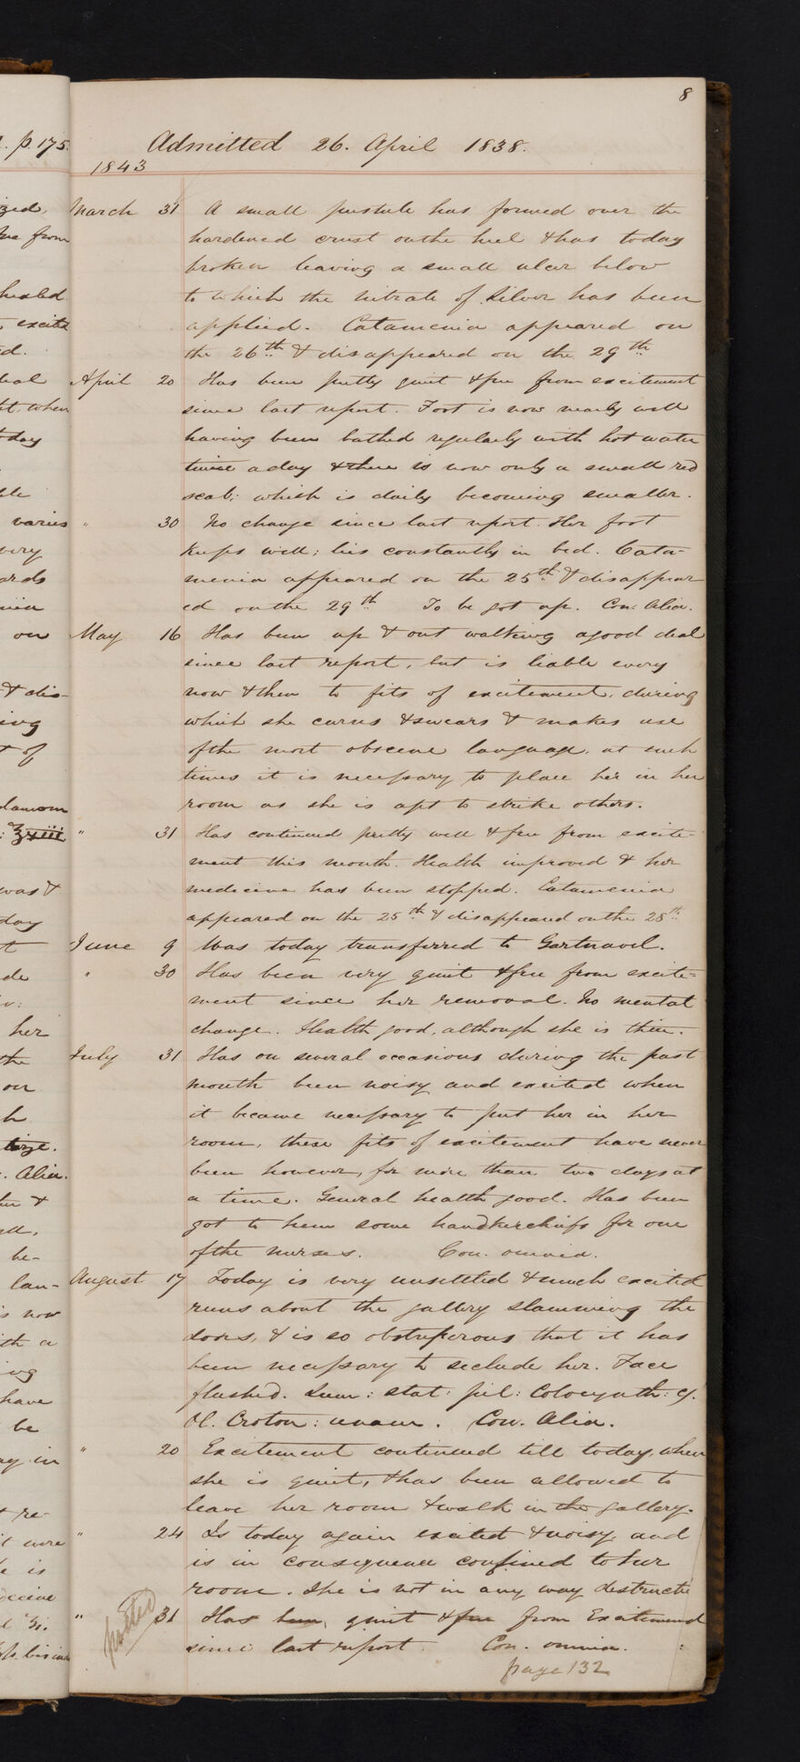 8
p. 175.
Admitted 26. April 1838.
1843
March 31 A small pustule has formed over the
hardened crust on the heel & has today
broken leaving a small ulcer below
to which the nitrate of Silver has been
applied. Catamenia appeared on
the 26th & disappeared on the 29th
April 20 Has been pretty quiet & free from excitement
since last report. Foot is now nearly well
having been bathed regularly with hot water
twice a day & there is now only a small red
scab: which is daily becoming smaller.
" 30 No change since last report. Her foot
keeps well; lies constantly in bed. Cata-
menia appeared on the 25th & disappear
ed on the 29th To be got up. Con. Alia.
May 16 Has been up & out walking a good deal
since last report, but is liable every
now & then to fits of excitement, during
which she curses & swears & makes use
of the most obscene language. at such
times it is necessary to place her in her
room as she is apt to strike others.
" 31 Has continued pretty well & free from excite-
ment this month. Health improved & her
medicine has been stopped. Catamenia
appeared on the 25th & disappeared on the 28th
June 9 Was today transferred to Gartnavel.
" 30 Has been very quiet & free from excite-
ment since her removal. No mental
change. Health good, although she is thin.
July 31 Has on several occasions during the past
month been noisy and excited when
it became necessary to put her in her
room, these fits of excitement have never
been however, for more than two days at
a time. General health good. Has been
got to hem some handkerchiefs for one
of the nurses. Con. omnia.
August 17 Today is very unsettled & much excited
runs about the gallery slamming the
doors, & is so obstreperous that it has
been necessary to seclude her. Face
flushed. Sum: stat: pil: Colocynth: cj.
Ol. Croton: unam. Con. Alia.
" 20 Excitement continued till today, when
she is quiet, & has been allowed to
leave her room & walk in the gallery.
" 24 Is today again excited & noisy and
is in consequence confined to her
room. She is not in any way destructi
" 31 Has been, quiet & free from Excitement
since last report. Con. omnia.
posted
page 132